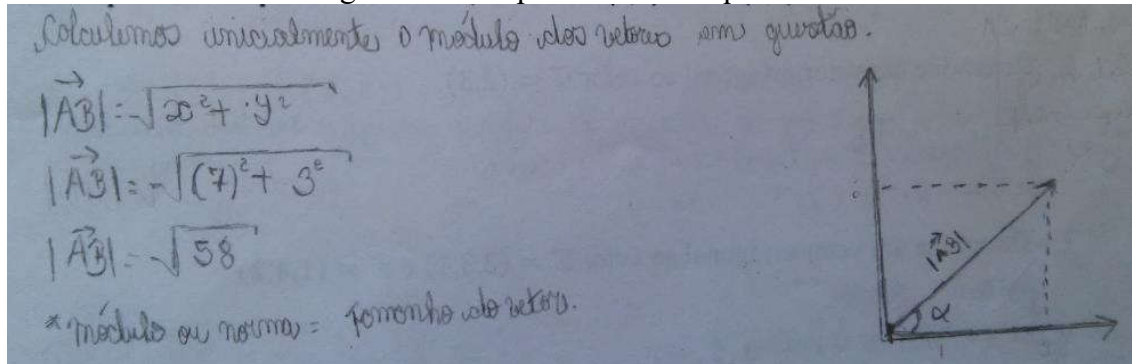 Calculemos inicialmente o módulo dos vetores em questão.
|AB| = √x² + y²
|AB| = √(7)² + 3²
|AB| = √58
* módulo ou norma = tamanho do vetor.
|AB|
α